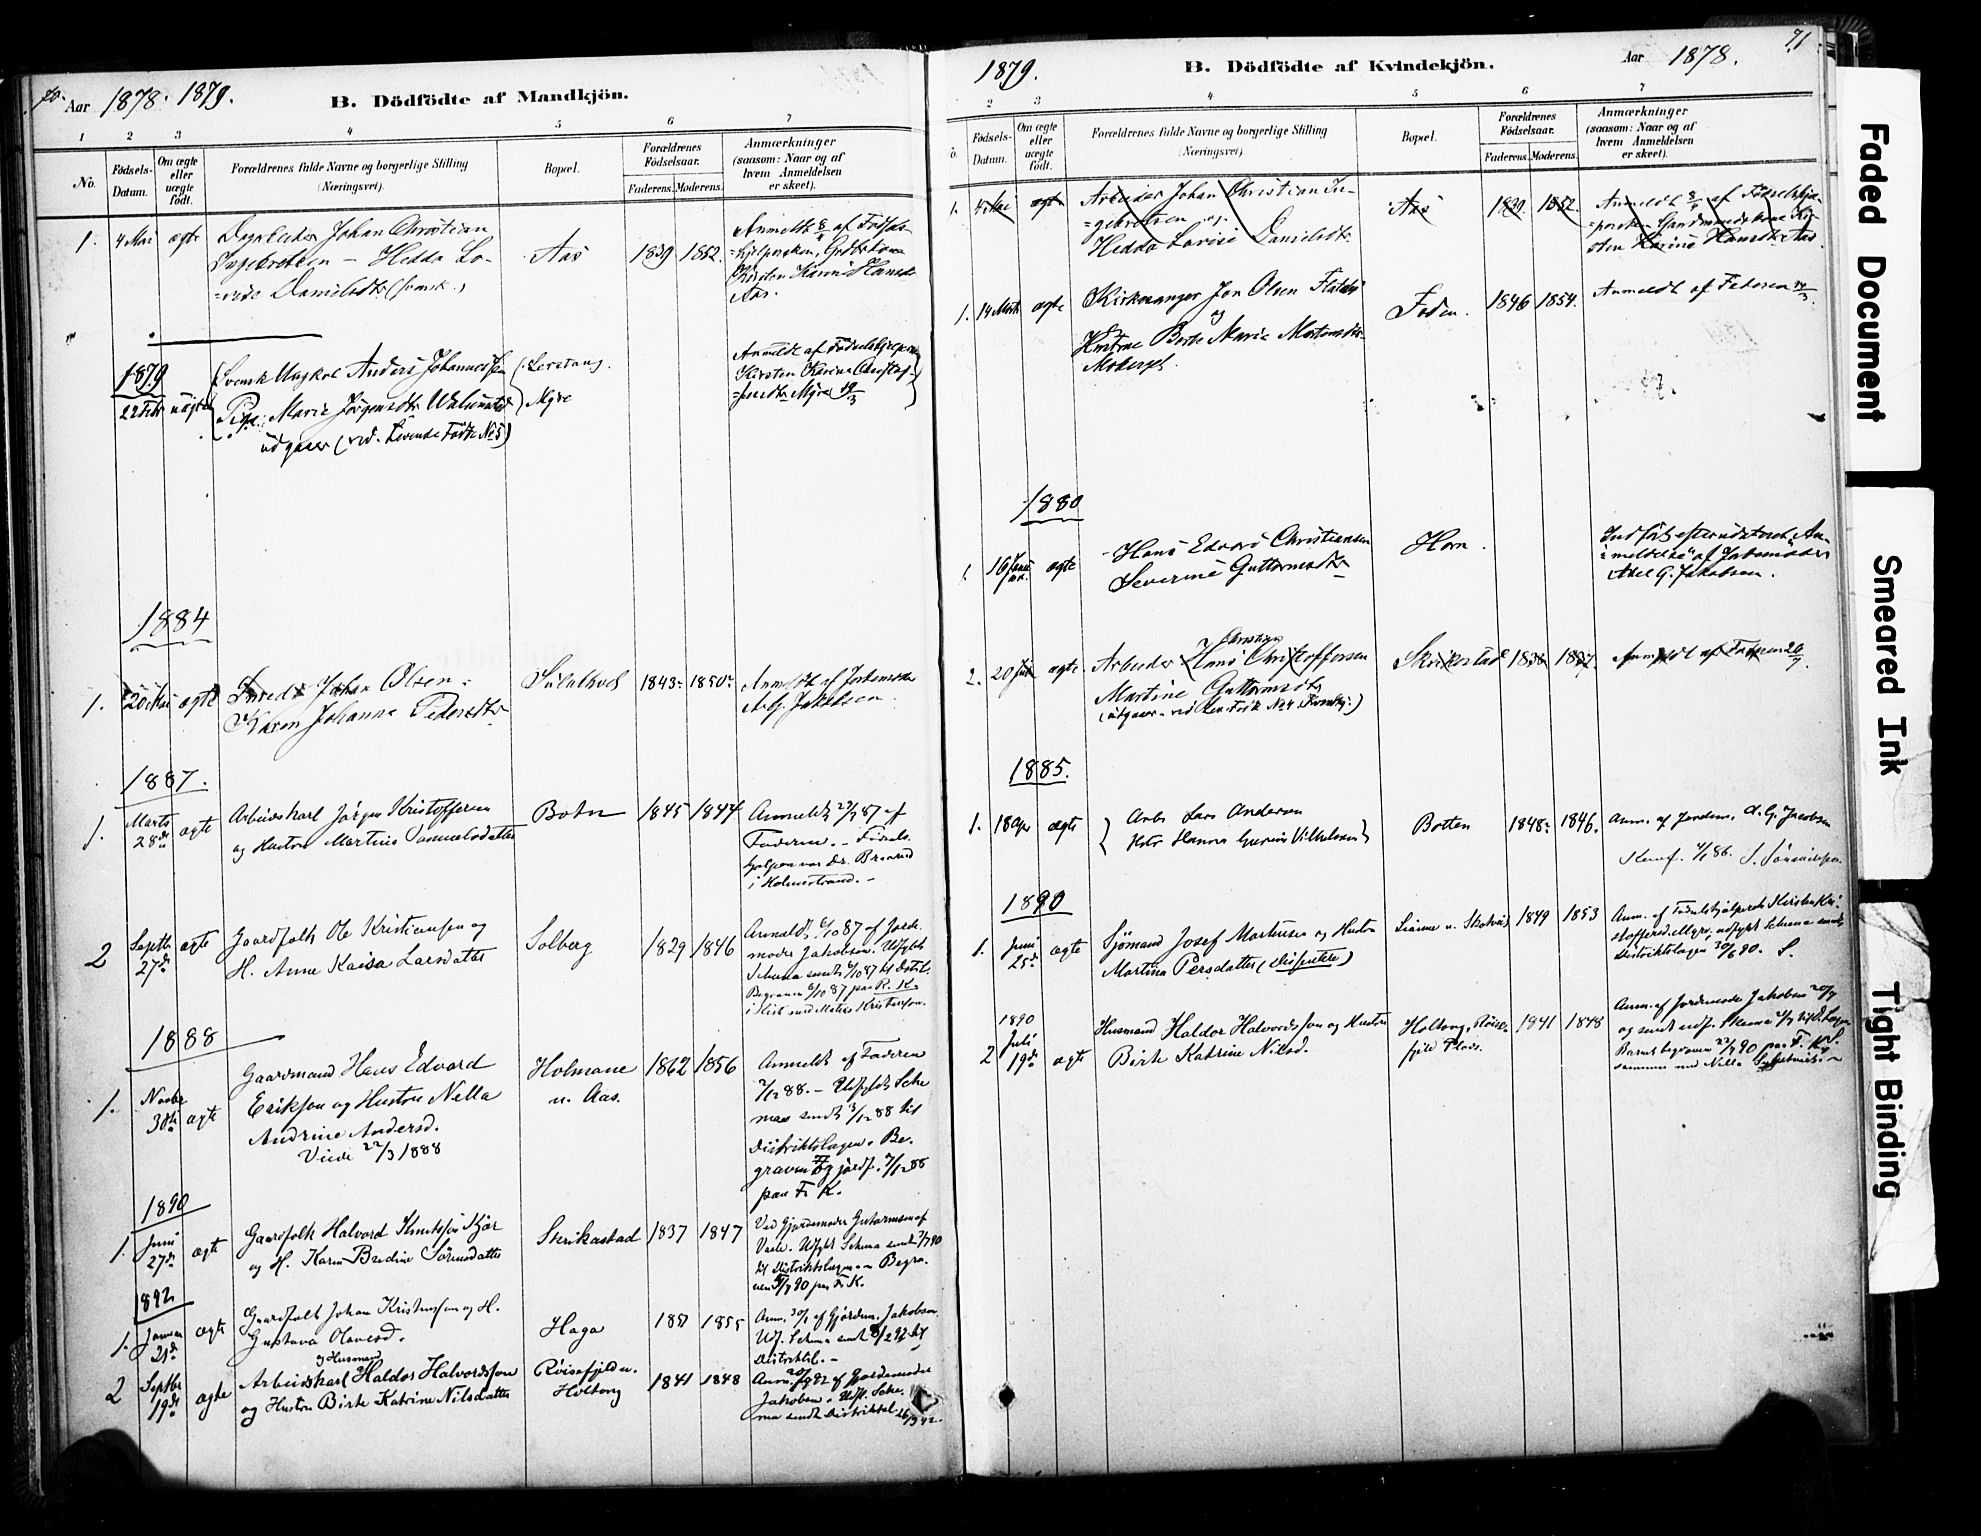 70.
Aar 1878. 1879.
B. Dödfödte af Mandkjön.
1 2 3 4 5 6 7
No.
Födsels-
Datum.
Om ægte
eller
uægte
födt.
Forældrenes fulde Navne og borgerlige Stilling
(Næringsvei).
Bopæl.
Forældrenes
Födselsaar.
Faderens. Moderens.
Anmærkninger
(saasom: Naar og af
hvem Anmeldelsen
er skeet).
1. 4 Mai ægte Johan Christian
Ingebretsen — Hedda Lo-
-vise Danielsdtr (svensk.)
Aas 1839 1852.
Anmeldt 8/5 af Födsels-
Kirsten Karine Hansdtr
Aas.
1879
22 Febr uægte
Svensk Ungkarl Anders Johannessen
Pige Marie Jörgensdtr
udgaaer (vid. Levende Födte No 5)
Lerstang.
Myre
Anmeldt af Födselshjelpersken
Kirsten Karine Christof-
=fersdtr Myre 19/3
1884
1. 20 Mai ægte Johan Olsen
Karen Johanna Pedersdtr
1843. 1850.
Anmeldt af Jordemoder
A. G. Jakobsen.
1887.
1. Marts
28de
ægte
Arbeidskarl Jörgen Kristoffersen
og Hustru Martine Samuelsdatter
Botn 1845 1844
Anmeldt 29/3 87 af
Faderen. – Födsels
hjelper var Dr.
i Holmestrand. –
2 Septb.
27de
ægte
Gaardfolk Ole Kristiansen og
H. Anne Kaisa Larsdatter
Solberg 1829 1846
Anmeldt 6/10 87 af Jorde
moder Jakobsen. Udfyldt
Schema sendt 6/10 87 til Distr.l.
Begraven 6/10 87 paa R. K.
1888
1. Novbr
30te
ægte
Gaardmand Hans Edvard
Eriksen og Hustru Nella
Andrine Andersd.
Viede 22/3 1888
Holmane
u. Aas.
1862 1856
Anmeldt af Faderen
3/12 88. – Udfyldt Sche
ma sendt 3/12 88 til
Distriktslægen. Be-
graven og jordf. 7/12 88
paa F. K.
1890
1. Juni
27de
ægte
Gaardfolk Halvord Knutsson Kjær
og H. Karen Bredine Sörensdatter
Skrikestad 1837 1847
Ved Gjordemoder Guttormsen af
Vaale. Udfyldt Schema sendt 1/7 90
til Distriktslægen – Begra-
ven 5/7 90 paa F. K.
1892
1. Januar
21de
ægte
Gaardfolk Johan Kristensen og H.
Gustava Olavesd.
Haga 1851 1855
Anm. 30/1 af Gjordem. Jakobsen
Udf. Schema sendt 8/2 92 til
Distriktsl. –
2 Septbr
19de
ægte
og Husmand
Arbeidskarl Haldor Halvordsson
og Hustru Birte Katrine Nilsdatter
Röisefjeld u.
Holtung
1841 1848
Anm. 20/9 92 af Gjordemoder
Jakobsen. Udf. Sche-
ma sendt Distriktsl. 26/9 92.
71
1879. B. Dödfödte af Kvindekjön. Aar 1878.
2 3 4 5 6 7
Födsels-
Datum.
Om ægte
eller
uægte
födt.
Forældrenes fulde Navne og borgerlige Stilling
(Næringsvei)
Bopæl.
Forældrenes
Födselsaar.
Faderens. Moderens.
Anmærkninger
(saasom: Naar og af
hvem Anmeldelsen
er skeet).
1. 4 Mai ægte Arbeider Johan Christian In-
=gebretsen og
Hedda Lovise Danielsdtr.
Aas 1839. 1852.
Anmeldt 8/5 af Födselshjæ-
-persken Gaardmandskone Kir-
sten Karine Hansdtr Aas.
1. 14 Marts ægte Kirkesanger Jon Olsen
og
Hustrue Berte Marie Mortensdtr
Foden. 1846 1854.
Anmeldt af Faderen 14/3.
1880
1. 16 Janu
ar.
ægte
Hans Edvard Christiansen
Severine Guttormsdtr
Horn.
Indfört efter udstedt An-
meldelse af Jordemoder
Axel G. Jakobsen.
2. 20 Juni ægte Arbeider Hans Christoffersen
Christian
Martine Guttormsdtr
Skrikestad 1838 1837
Anmeldt af Faderen 26/7
1885.
1. 18 Apr ægte
Arb. Lars Andersen
Hanna Vilhelmsen
Botten 1848. 1846.
Anm. af Jordem. A. G. Jacobsen
1/1 86.
1890
1. Juni
25de
ægte
Sjömand Josef Martinsen og Hustru
Martina Persdatter (Dissentere)
1849 1853
Anm. af Födselshjælperske Kirsten Kri-
stoffersd. Myre, udfyldt Schema sendt
Distriktslægen 30/6 90. S.
1890
Juli
2 19de ægte
Husmand Haldor Halvordsson og Hustru
Birte Katrine Nilsd.
Holtung, Röise-
fjeld Plads.
1841 1848
Anm. af Jordemoder Jakobsen 20/7
Barnet begraven 23/7 90 paa F. K.
sammen med
Faded Document
Smeared Ink
Tight Binding